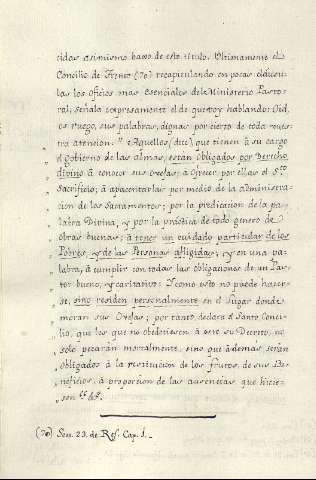 tidas asimismo baxo de este titulo. Ultimamente el
Concilio de Trento (70) recapitulando en pocas clausu-
las los oficios mas esenciales de el Ministerio Pasto-
ral, señala expresamente el de que voy hablando: Oid,
os ruego, sus palabras, dignas por cierto de toda vues-
tra atencion. " Aquellos (dice) que tienen à su cargo
" el gobierno de las almas, están obligados por Derecho
" divino à conocer sus Ovejas; à ofrecer por ellas el Sto
" Sacrificio; à apacentarlas por medio de la administra-
" cion de los Sacramentos; por la predicacion de la pa-
" labra Divina, y por la práctica de todo genero de
" obras buenas; à tener un cuidado particular de los
" Pobres, y de las Personas afligidas; y en una pa-
" labra, à cumplir con todas las obligaciones de un Pas-
" tor bueno, y caritativo: Y como esto no puede hacer-
" se, sino residen personalmente en el lugar donde
" moran sus Ovejas; por tanto, declara el Santo Conci-
" lio, que los que no obedeciesen à este su Decreto, no
" solo pecarán mortalmente, sino que à demas serán
" obligados à la restitucion de los frutos de sus Be-
" neficios, à proporcion de las ausencias que hicie-
" sen
(70) Ses. 23. de Ref. Cap. 1.